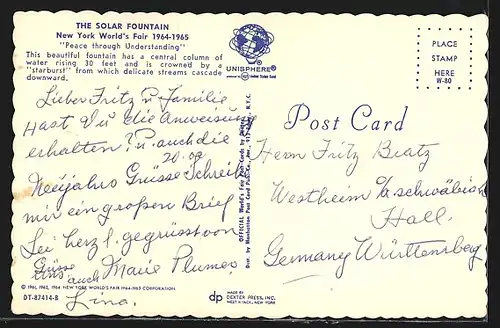 THE SOLAR FOUNTAIN
New York World's Fair 1964-1965
"Peace through Understanding"
This beautiful fountain has a central column of
water rising 30 feet and is crowned by a
"starburst" from which delicate streams cascade
downward.
UNISPHERE®
United States Steel
PLACE
STAMP
HERE
W-80
Post Card
Lieber Fritz u Familie
Hast Du die Anweisung
erhalten? u. auch die
20.00
Neujahrs Grüsse Schreibe
mir ein großen Brief
Sei herzl. gegrüsst von
Marie Plumer
Grüsse
uns auch
Lina.
Herrn Fritz Beatz
Westheim b/a. schwäbisch
Hall.
Germany Württemberg
OFFICIAL World's Fair Post Cards by Dexter
Dist. by Manhattan Post Card Pub. Co., Inc., N.Y.C.
© 1961, 1962, 1964 NEW YORK WORLD'S FAIR 1964-1965 CORPORATION
DT-87414-B
dp
MADE BY
DEXTER PRESS, INC.
WEST NYACK, NEW YORK